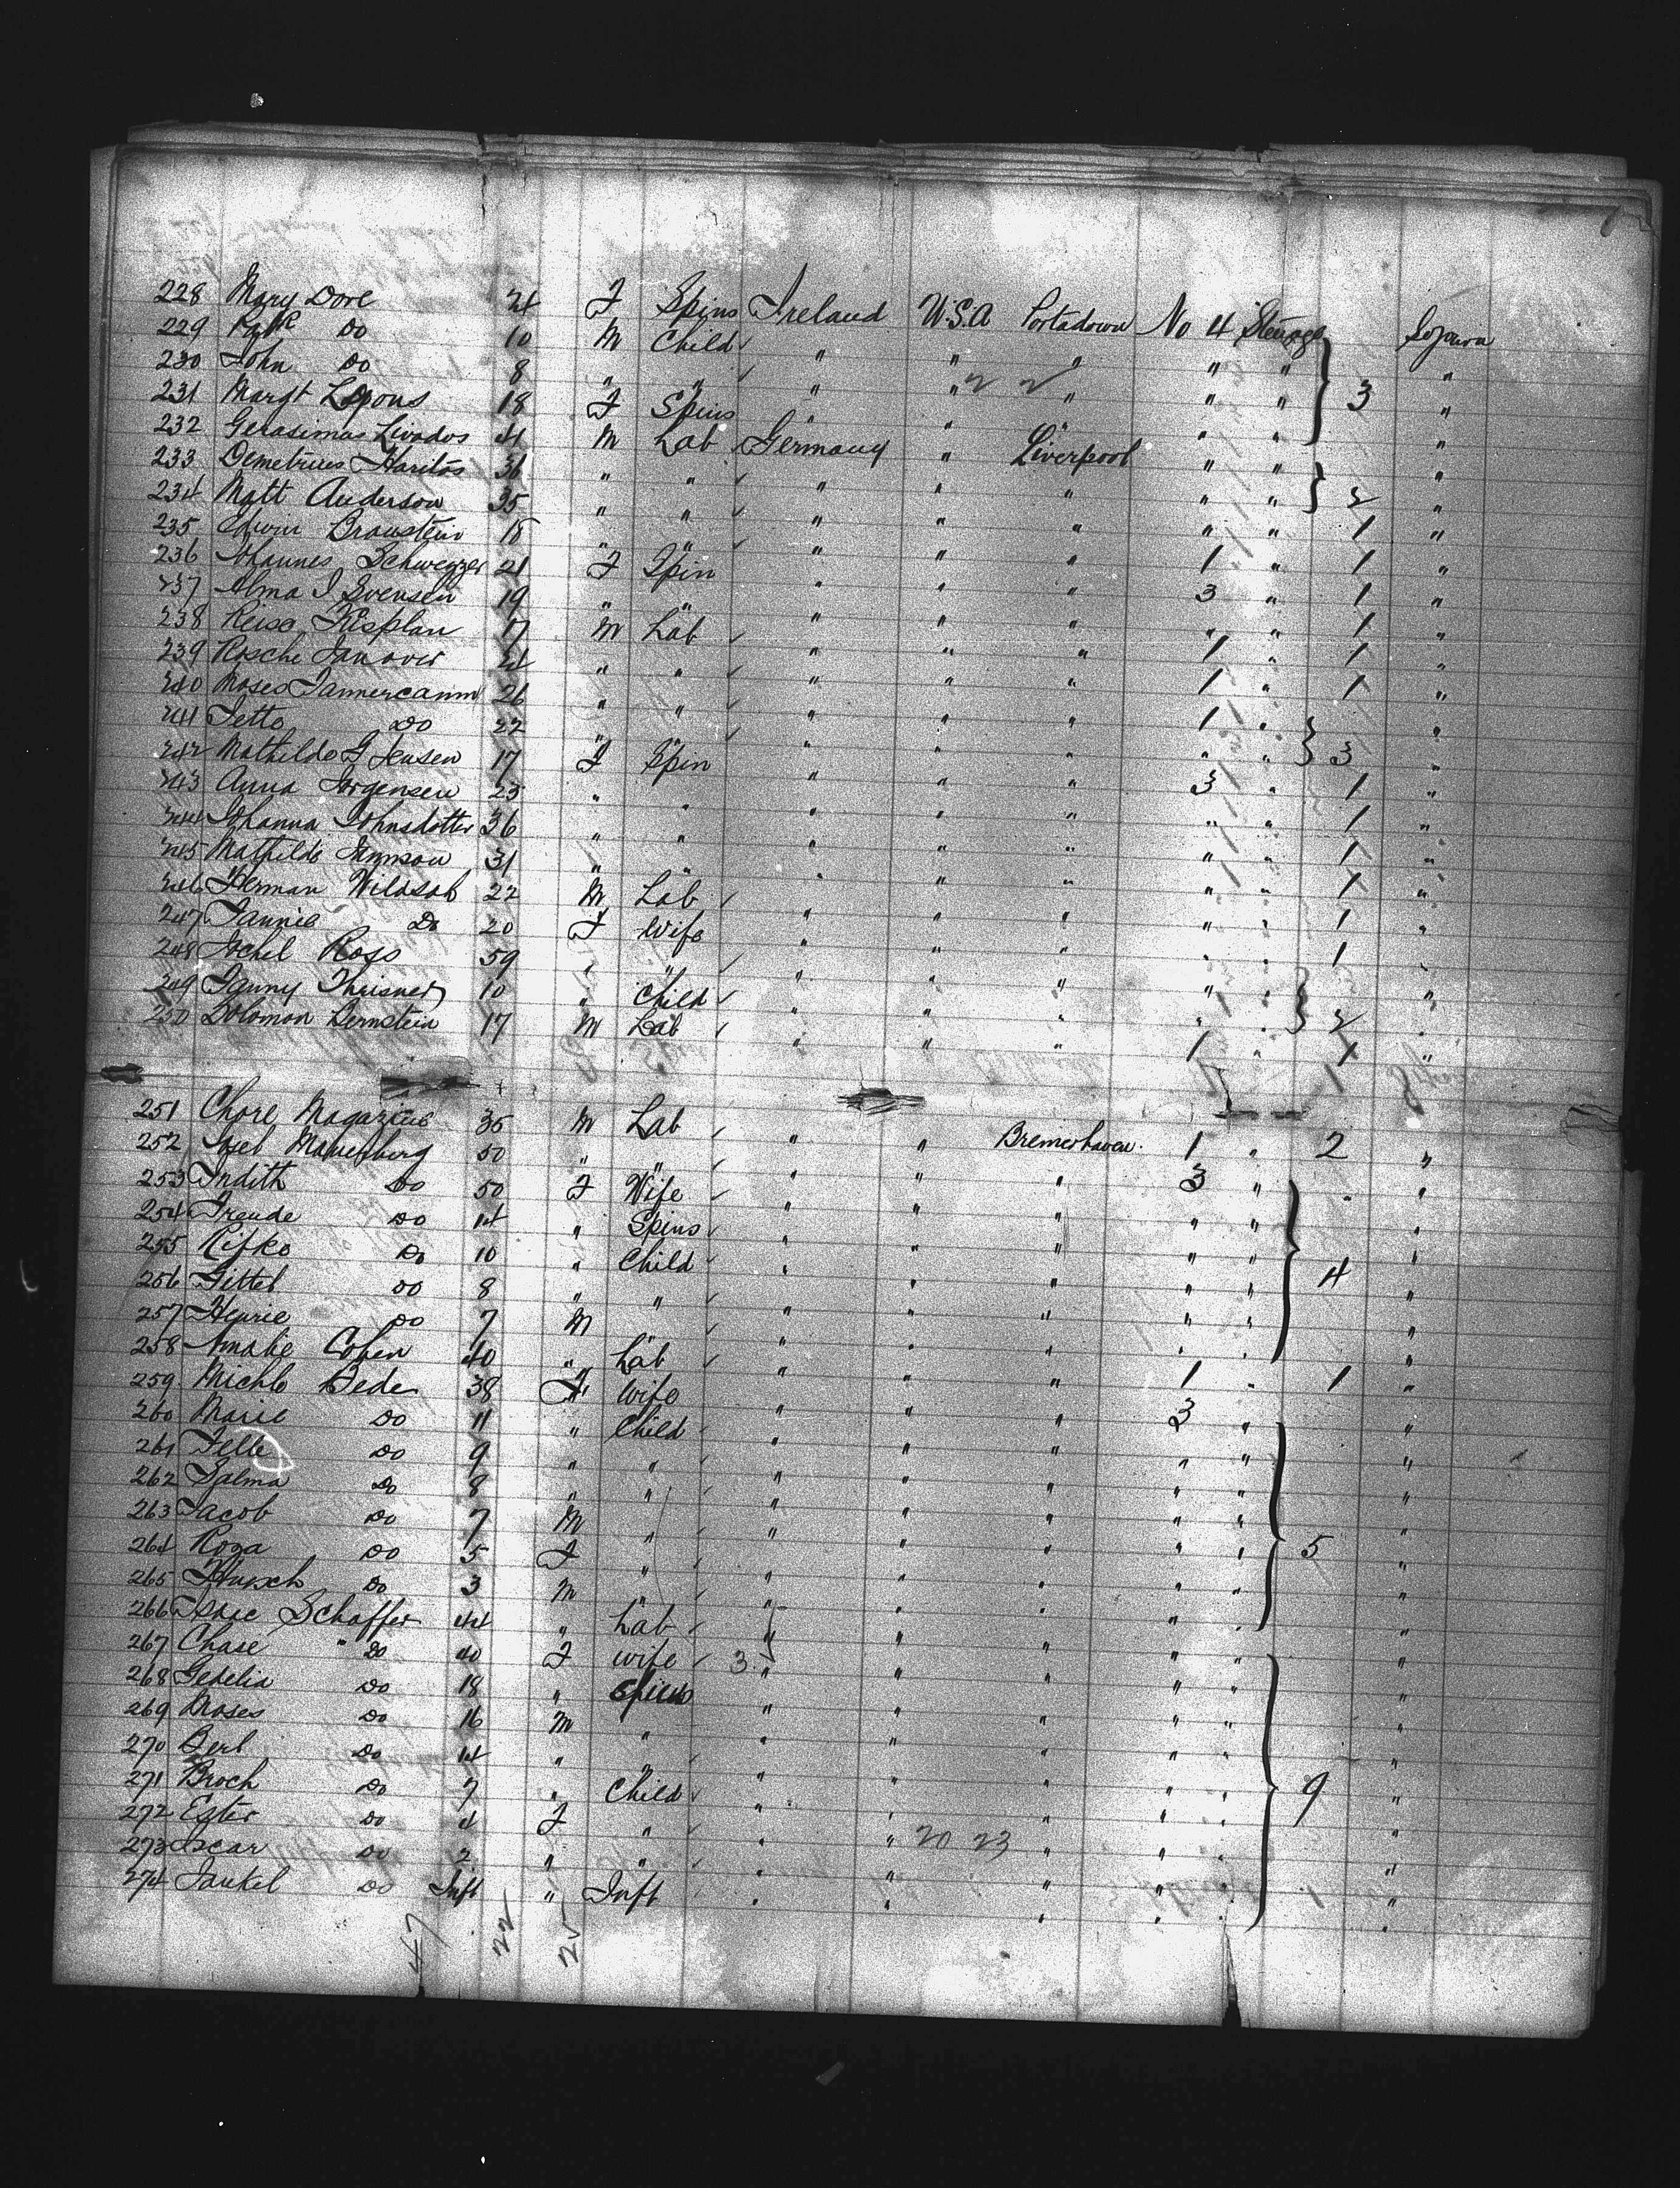 228 Mary Dore 24 F Spins Ireland U.S.A Portadown No 4 Steerage Sojourn
229 Patk Do 10 M Child " " " " " "
230 John Do 8 " " " " " " " 3 "
231 Margt Lyons 18 F Spins " " " " " "
232 Gerasimas Livados 41 M Lab Germany " Liverpool " " "
233 Demetrius Haritos 36 " " " " " " " 2 "
234 Matt Anderson 35 " " " " " " " 1 "
235 Edwin Braustein 18 " " " " " 1 " 1 "
236 Johannes Schweyzer 21 F Spin " " " 3 " 1 "
237 Alma J Svensen 19 " " " " " " " 1 "
238 Reise Kisplan 17 M Lab " " " 1 " 1 "
239 Rosche Janover 21 " " " " " 1 " 1 "
240 Moses 26 " " " " " 1 " "
241 Jette Do 22 " " " " " " " 3 "
242 Mathilde G Jensen 17 F Spin " " " 3 " 1 "
243 Anna Jorgensen 25 " " " " " " " 1 "
244 Johanna Johnsdotter 36 " " " " " " " 1 "
245 Mathilde 31 " " " " " " " 1 "
246 Herman 22 M Lab " " " " " 1 "
247 Fannie Do 20 F Wife " " " " " 1 "
248 Ross 59 " " " " " " " "
249 Fanny 10 " Child " " " " " 2 "
250 Solomon Bernstein 17 M Lab " " " 1 " 1 "
251 Chore Magazine 36 M Lab " " Bremerhaven 1 " 2 "
252 50 " " " " " 3 " "
253 Judith Do 50 F Wife " " " " " "
254 Freude Do 14 " Spins " " " " " "
255 Rifke Do 10 " Child " " " " " 4 "
256 Gittel Do 8 " " " " " " " "
257 Henrie Do 7 M " " " " " "
258 Amalie Cohen 40 " Lab " " " 1 " 1 "
259 Michle Beder 38 F Wife " " " 3 " "
260 Marie Do 11 " Child " " " " " "
261 Do 9 " " " " " " " "
262 Salma Do 8 " " " " " " " "
263 Jacob Do 7 M " " " " " " "
264 Roza Do 5 F " " " " " " 5 "
265 Hirsch Do 3 M " " " " " " "
266 Isaac Schaffer 44 " Lab " " " " " "
267 Chase " Do 40 F wife 3 " " " " " "
268 Gedelia Do 18 " Spins " " " " " "
269 Moses Do 16 M " " " " " " "
270 Berl Do 14 " " " " " " " "
271 Broch Do 7 " Child " " " " " 9 "
272 Ester Do 4 F " " " " " " "
273 Do 2 " " " " 20 23 " " " "
274 Jankel Do Inft " Inft " " " " " "
47 22 25